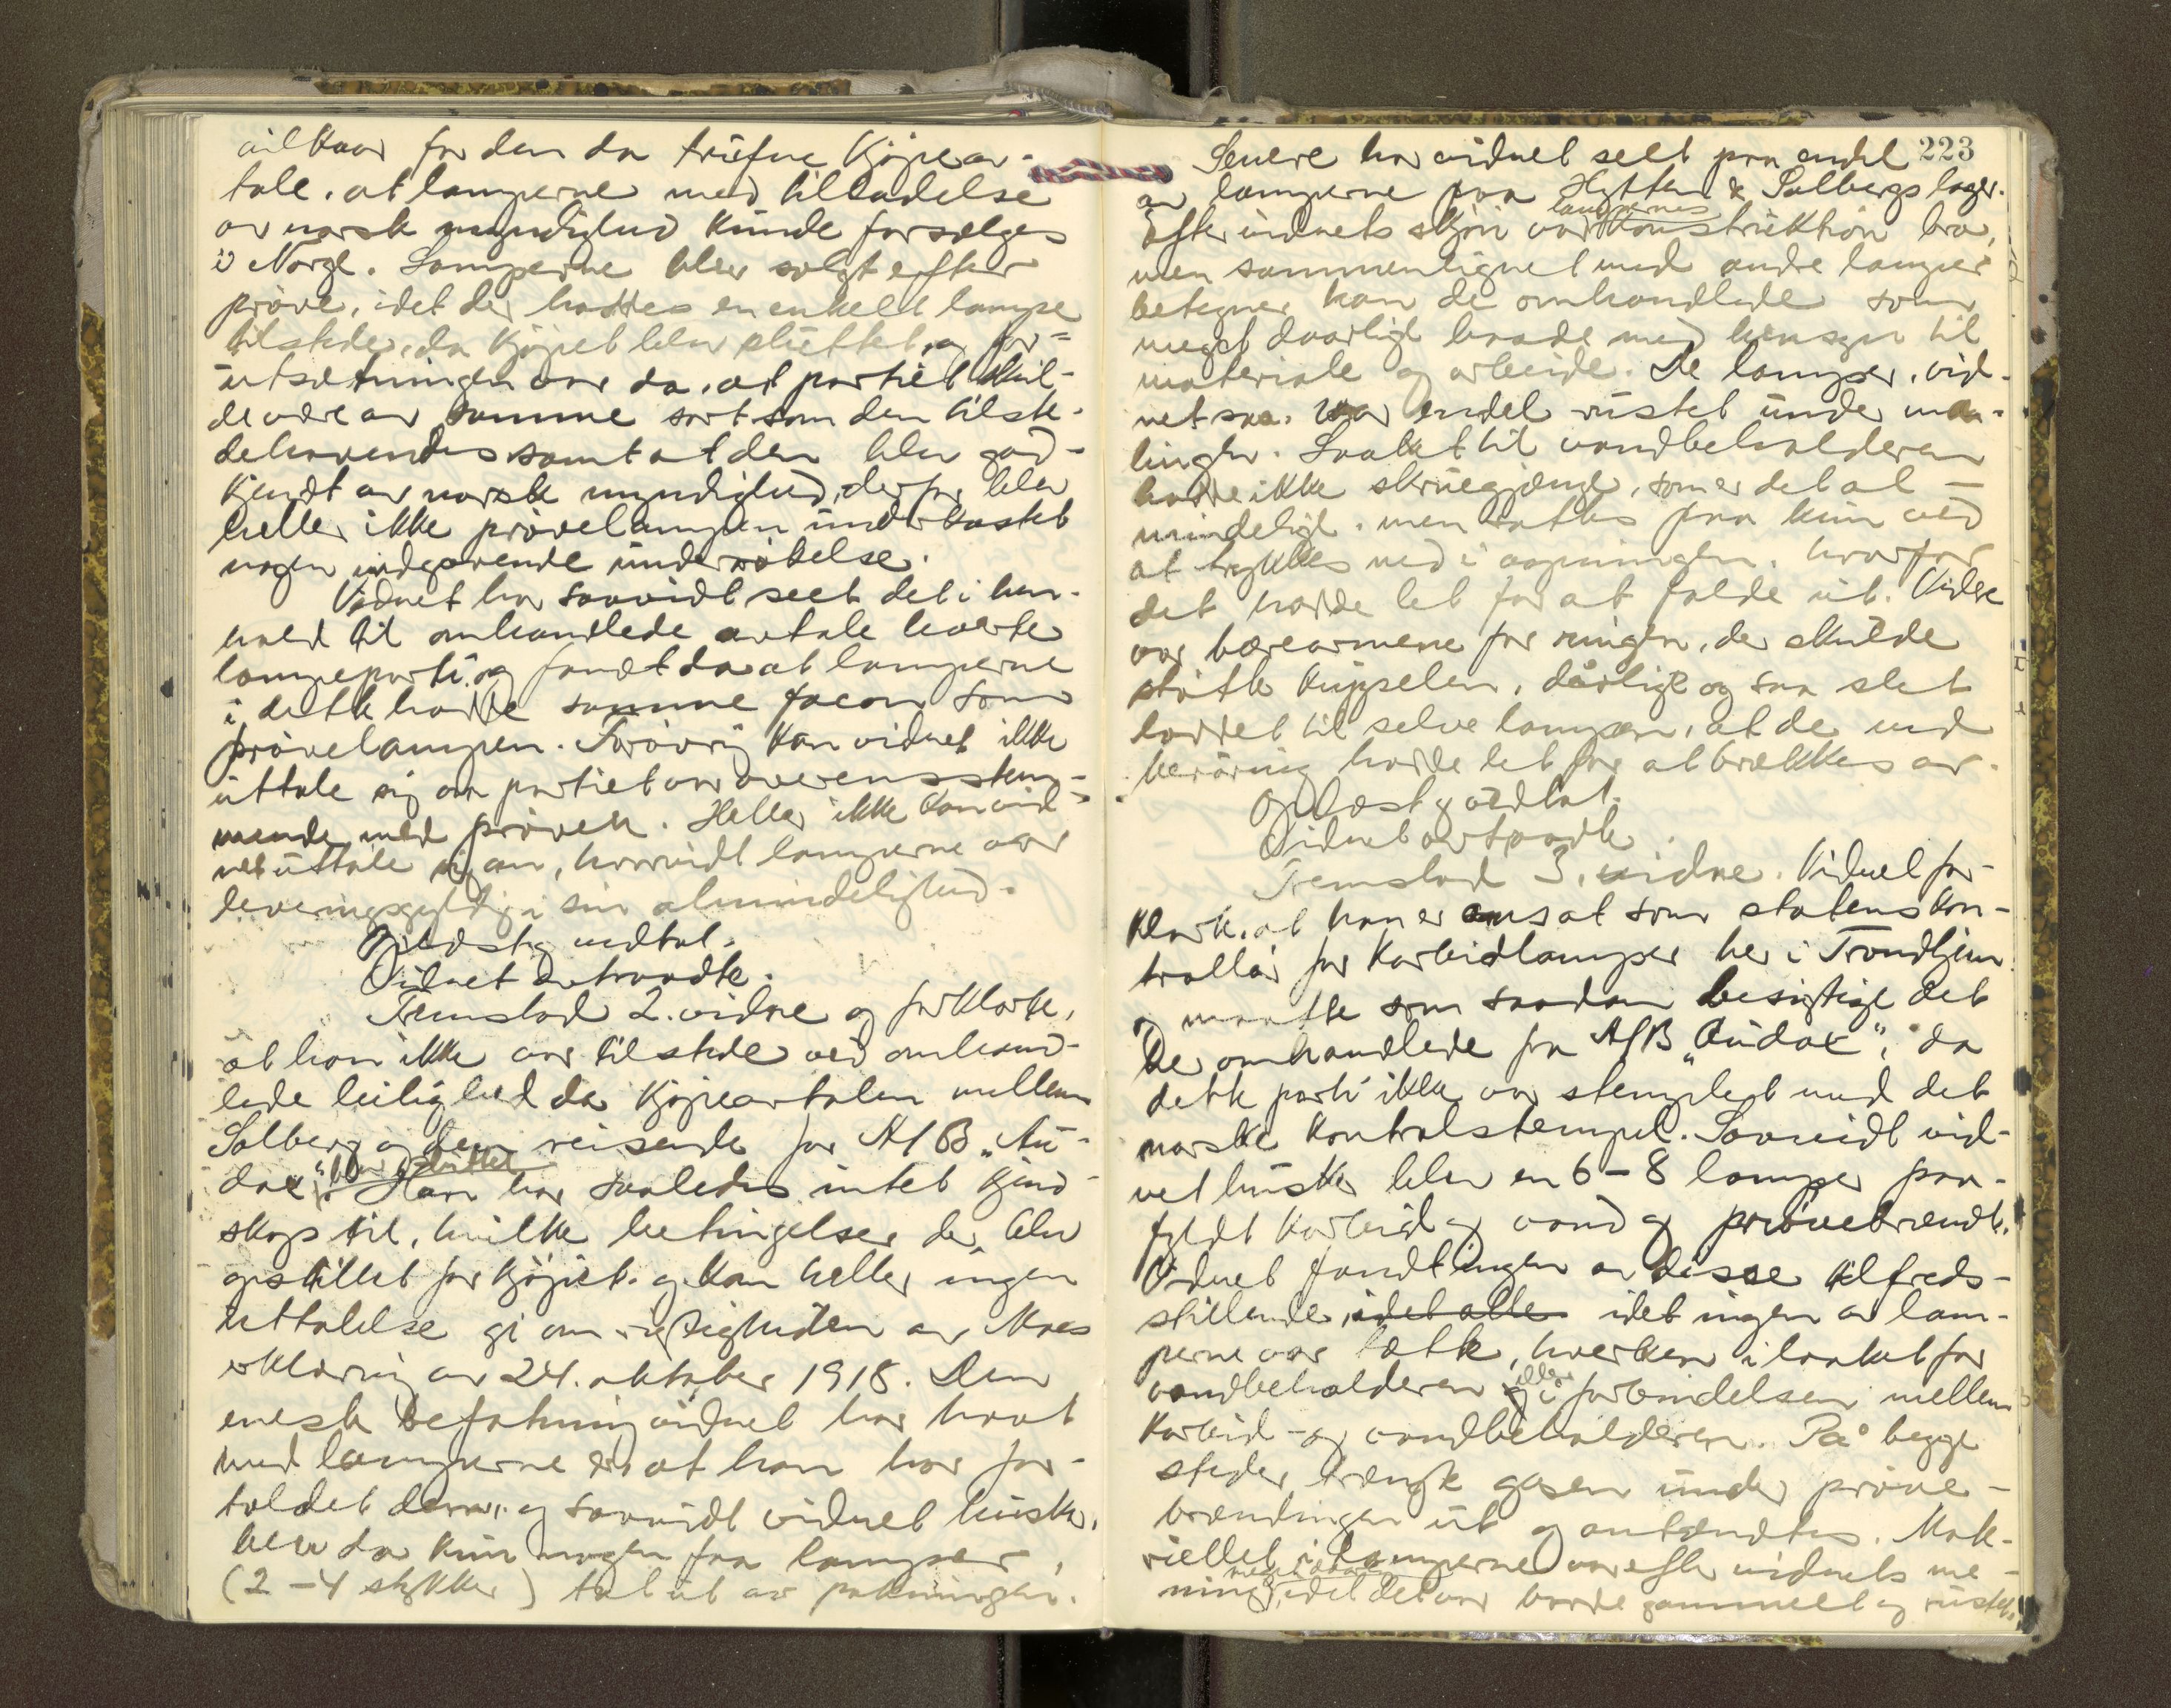 vilkaar for den da trufne kjøpeav-
tale, at lamperne med tilladelse
av norsk myndighed kunde forsælges
i Norge. Lamperne blev solgt efter
prøve, idet der hadtes en enkelt lampe
tilstede, da kjøpet blev sluttet, og for-
utsætningen var da, at partiet skul-
de være av samme sort som den tilste-
dehavendes samt at den blev god-
kjendt av norsk myndighed, derfor blev
heller ikke prøvelampen underkastet
nogen indgaaende undersøkelse.
Vidnet har saavidt seet det i hen-
hold til omhandlede avtale leverte
lampeparti, og fandt da at lamperne
i dette hadde samme facon som
prøvelampen. Forøvrig kan vidnet ikke
uttale sig om partiet var overensstem-
mende med prøven. Heller ikke kan vid-
net uttale sig om, hvorvidt lamperne var
leveringsgyldig i sin almindelighed.
Oplæst og vedtat.
Vidnet fratraadte.
Fremstod 2. vidne og forklarte,
at han ikke var tilstede ved omhand-
lede leilighed da kjøpeavtalen mellem
Solberg og den reisende for A/B „Au-
dax“ blev sluttet. Han har saaledes intet kjend-
skap til, hvilke betingelser der blev
opstillet for kjøpet, og kan heller ingen
uttalelse gi om rigtigheten av Moes
erklæring av 24. oktober 1918. Den
eneste befatning vidnet har havt
med lamperne er at han har for-
toldet dem, og saavidt vidnet husker,
blev da kun nogen faa lamper,
(2-4 stykker) tat ut av pakningen.
223
Senere har vidnet seet paa endel
av lamperne paa Hytten & Solbergs lager.
Efter vidnets skjøn var lampernes konstruktion bra,
men sammenlignet med andre lamper
betegner han de omhandlede som
meget daarlige baade med hensyn til
materiale og arbeide. De lamper, vid-
net saa, var endel rustet under ma-
lingen. Laaket til vandbeholderen
hadde ikke skruegjænge, som er det al-
mindelige, men sattes paa kun ved
at trykkes ned i aapningen, hvorfor
det hadde let for at falde ut. Videre
var bærearmene for ringen, der skulde
støtte kuppelen, dårlige og saa slet
loddet til selve lampen, at de ved
berøring hadde let for at brækkes av.
Oplæst og vedtat.
Vidnet fratraadte.
Fremstod 3. vidne. Vidnet for-
klarte, at han er ansat som statens kon-
trollør for karbidlamper her i Trondhjem
og maatte som saadan besigtige det
her omhandlede fra A/B „Audax“, da
dette parti ikke var stemplet med det
norske kontrolstempel. Saavidt vid-
net husker blev en 6-8 lamper paa-
fyldt karbid og vand og prøvebrændt.
Vidnet fandt ingen av disse tilfreds-
stillende, idet alle idet ingen av lam-
perne var tætte, hverken i laaket for
vandbeholderen eller i forbindelsen mellem
karbid- og vandbeholderen. På begge
steder trængte gasen under prøve-
brændingen ut og antændtes. Mate-
riellet i lamperne var efter vidnets me-
ning, idet det var baade gammelt og rustet.